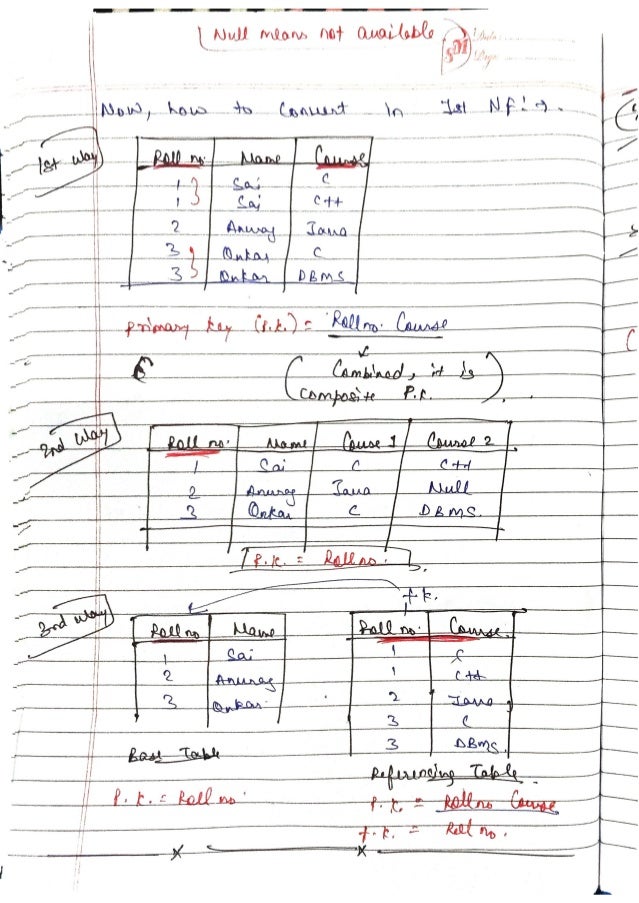 Null means not available
Date
Page
Now, how to Convert In Ist NF:→.
1st way
Roll no Name Course
1 Sai C
1 Sai C++
2 Anurag Java
3 Onkar C
3 Onkar DBMS
primary key (P.K.) = Roll no. Course
Combined, it is
composite P.K.
2nd way
Roll no. Name Couse 1 Course 2
1 Sai C C++
2 Anurag Java Null
3 Onkar C DBMS.
P.K. = Roll no.
f.k.
3rd way
Roll no Name
1 Sai
2 Anurag
3 Onkar
Base Table
P.K. = Roll no.
Roll no. Course.
1 C
1 C++
2 Java
3 C
3 DBMS.
Referencing Table
P.K. = Roll no Course
f.K. = Roll no.